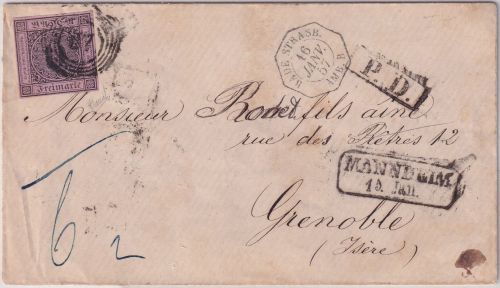 Freimarke
BADE STRASB.
16
JANV.
57
AMB. B
P.D.
Monsieur Romet fils ainé
rue des Prêtres 12
MANNHEIM
15 Jan.
Grenoble
(Isère)
6